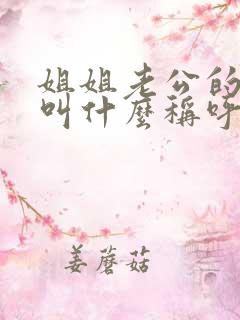 姐姐老公的
叫什麼稱呼
姜蘑菇